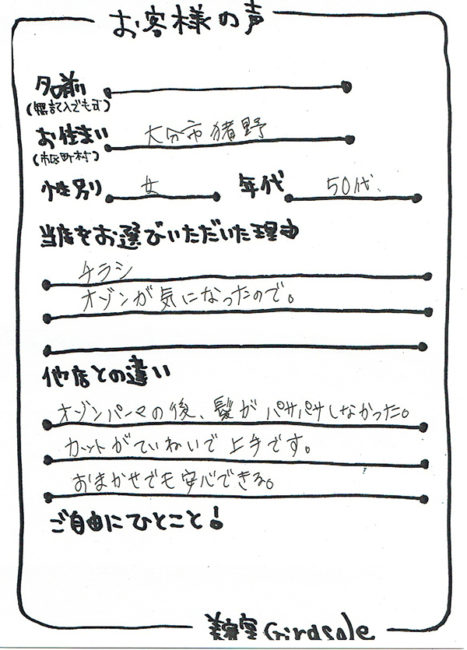 お客様の声
名前
(無記入でも可)
お住まい 大分市猪野
(市区町村)
性別 女 年代 50代、
当店をお選びいただいた理由
チラシ
オゾンが気になったので。
他店との違い
オゾンパーマの後、髪がパサパサしなかった。
カットがていねいで上手です。
おまかせでも安心できる。
ご自由にひとこと!
美容室